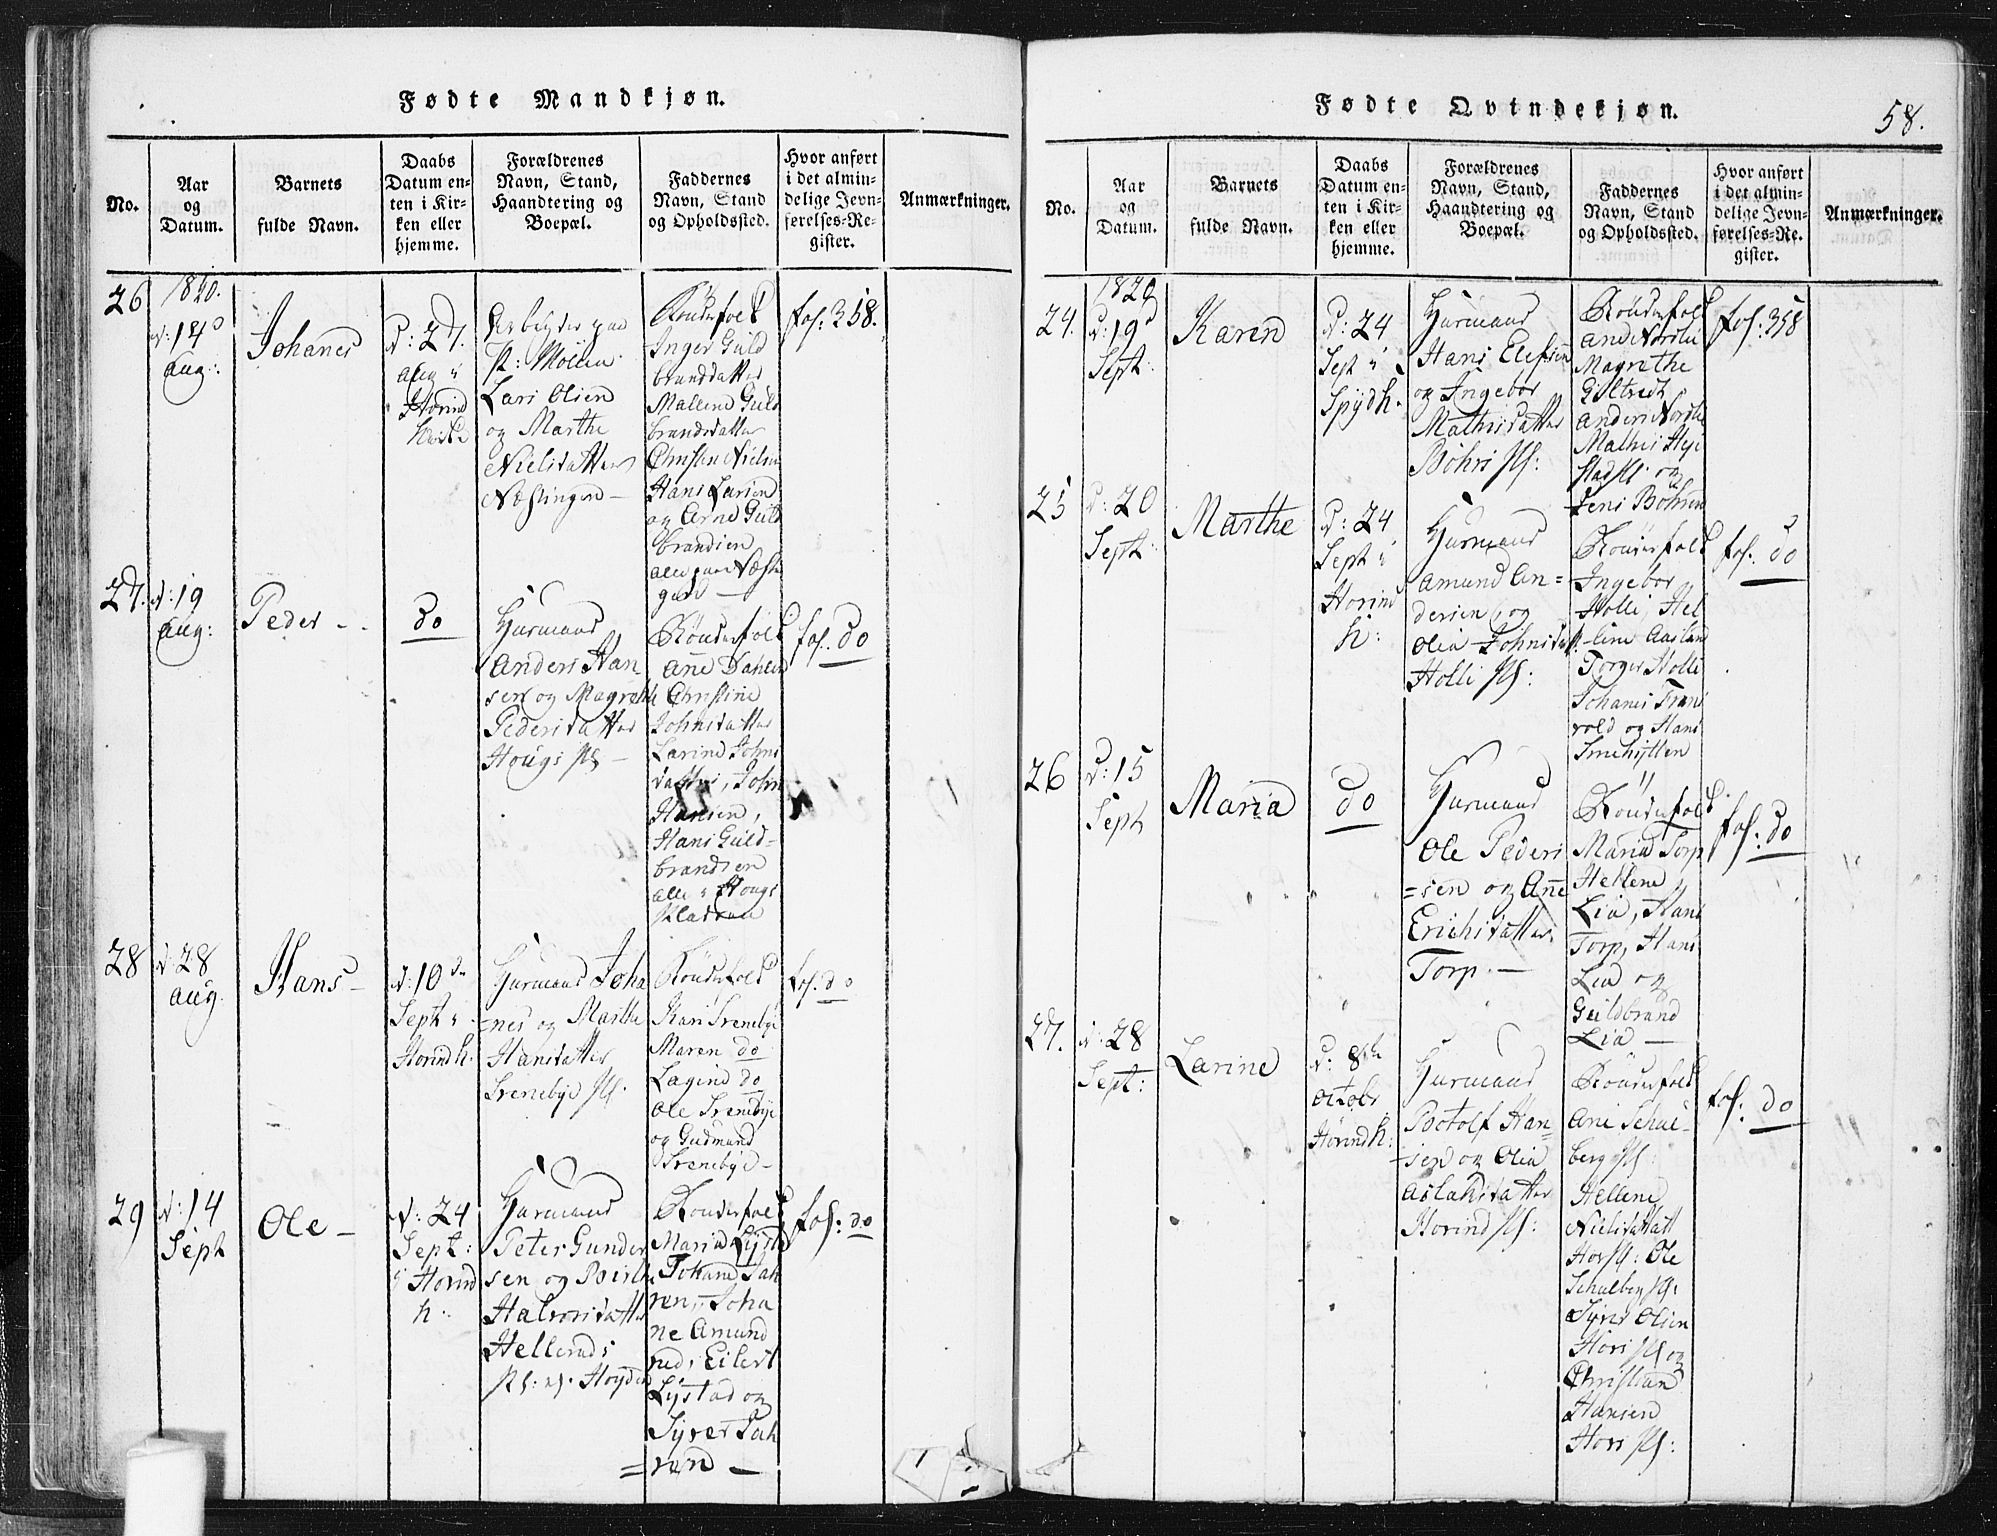 Fødte Mandkjøn.
No.
Aar
og
Datum.
Barnets
fulde Navn.
Daabs
Datum en-
ten i Kir-
ken eller
hjemme.
Forældrenes
Navn, Stand,
Haandtering og
Boepæl.
Faddernes
Navn, Stand
og Opholdssted.
Hvor anført
i det almin-
delige Jevn-
førelses-Re-
gister.
Anmærkninger.
26
1820.
d: 14
aug:
Johanes
d: 27.
aug
Arbeider
Lars Olsen
og Marthe
Nielsdatter
Næstingen
Bondefolk
Inger Guld
brandsdatter
Mallene Guld
brandsdatter
Christen Nielsen
Hans Larsen
og Arne Guld
brandsen
fol: 358.
27.
d: 19
aug:
Peder
do
Huusmand
Anders Han-
sen og Magrethe
Pedersdatter
Hougs
Bondefolk
Ane Dahlen
Christine
Johnsdatter
Larine Johns
datter, John
Hansen,
Hans Guld-
brandsen
fol. do
28
d: 28
aug.
Hans
d: 10de
Sept
Horind k.
Huusmand Joha
nes og Marthe
Hansdatter
Srenebye
Bondefolk
Kari Srenebye
Maren do
Lagine do
Ole Srenebye
og Gudmund
Srenebye
fol. do
29
d: 14
Sept
Ole
d: 24
Sept:
i Horind
k.
Huusmand
Peter Gunder
sen og Birthe
Halvorsdatter
Hellerud
Bondefolk
Maria Lystad
Johane Jah
ren, Joha
ne Amund
rud, Eilert
Lystad og
Syver Jah
ren
fol: do
Fødte Qvindekjøn.
58.
No.
Aar
og
Datum.
Barnets
fulde Navn.
Daabs
Datum en-
ten i Kir-
ken eller
hjemme.
Forældrenes
Navn, Stand,
Haandtering og
Boepæl.
Faddernes
Navn, Stand
og Opholdssted.
Hvor anført
i det almin-
delige Jevn-
førelses-Re-
gister.
Anmærkninger.
24.
1820
d: 19
Sept:
Karen
d: 24
Sept i
Spydk.
Huusmand
Hans Elefsen
og Ingebor
Mathisdatter
Bøhn
Bondefolk
Magrethe
Giltvedt
Mathis
og
Jens Bøhnen
fol: 358
25
d: 20
Sept:
Marthe
d: 24
Sept i
Horind
k:
Huusmand
Amund An-
dersen og
Olea Johnsdatt.
Holli
Bondefolk
Ingebor
Holli, Hel
line Aasland
Torger Holli
Johanes Tran
vold og Hans
Smehytten
fol. do
26
d: 15
Sept
Maria
do
Huusmand
Ole Peders
sen og Ane
Erichsdatter
Torp.
Bondefolk
Maria Torp
Hellene
Lia, Hans
Torp, Hans
Lia og
Guldbrand
Lia
fol: do
27.
d: 28
Sept:
Larine
d: 8de
Octobr
Horind k:
Huusmand
Botolf Han-
sen og Olea
Aslaksdatter
Horind
Bondefolk
Ane Schul-
berg
Hellene
Nielsdatter
Ole
Schulberg
Syver Olsen
og
Christian
Hansen
fol. do